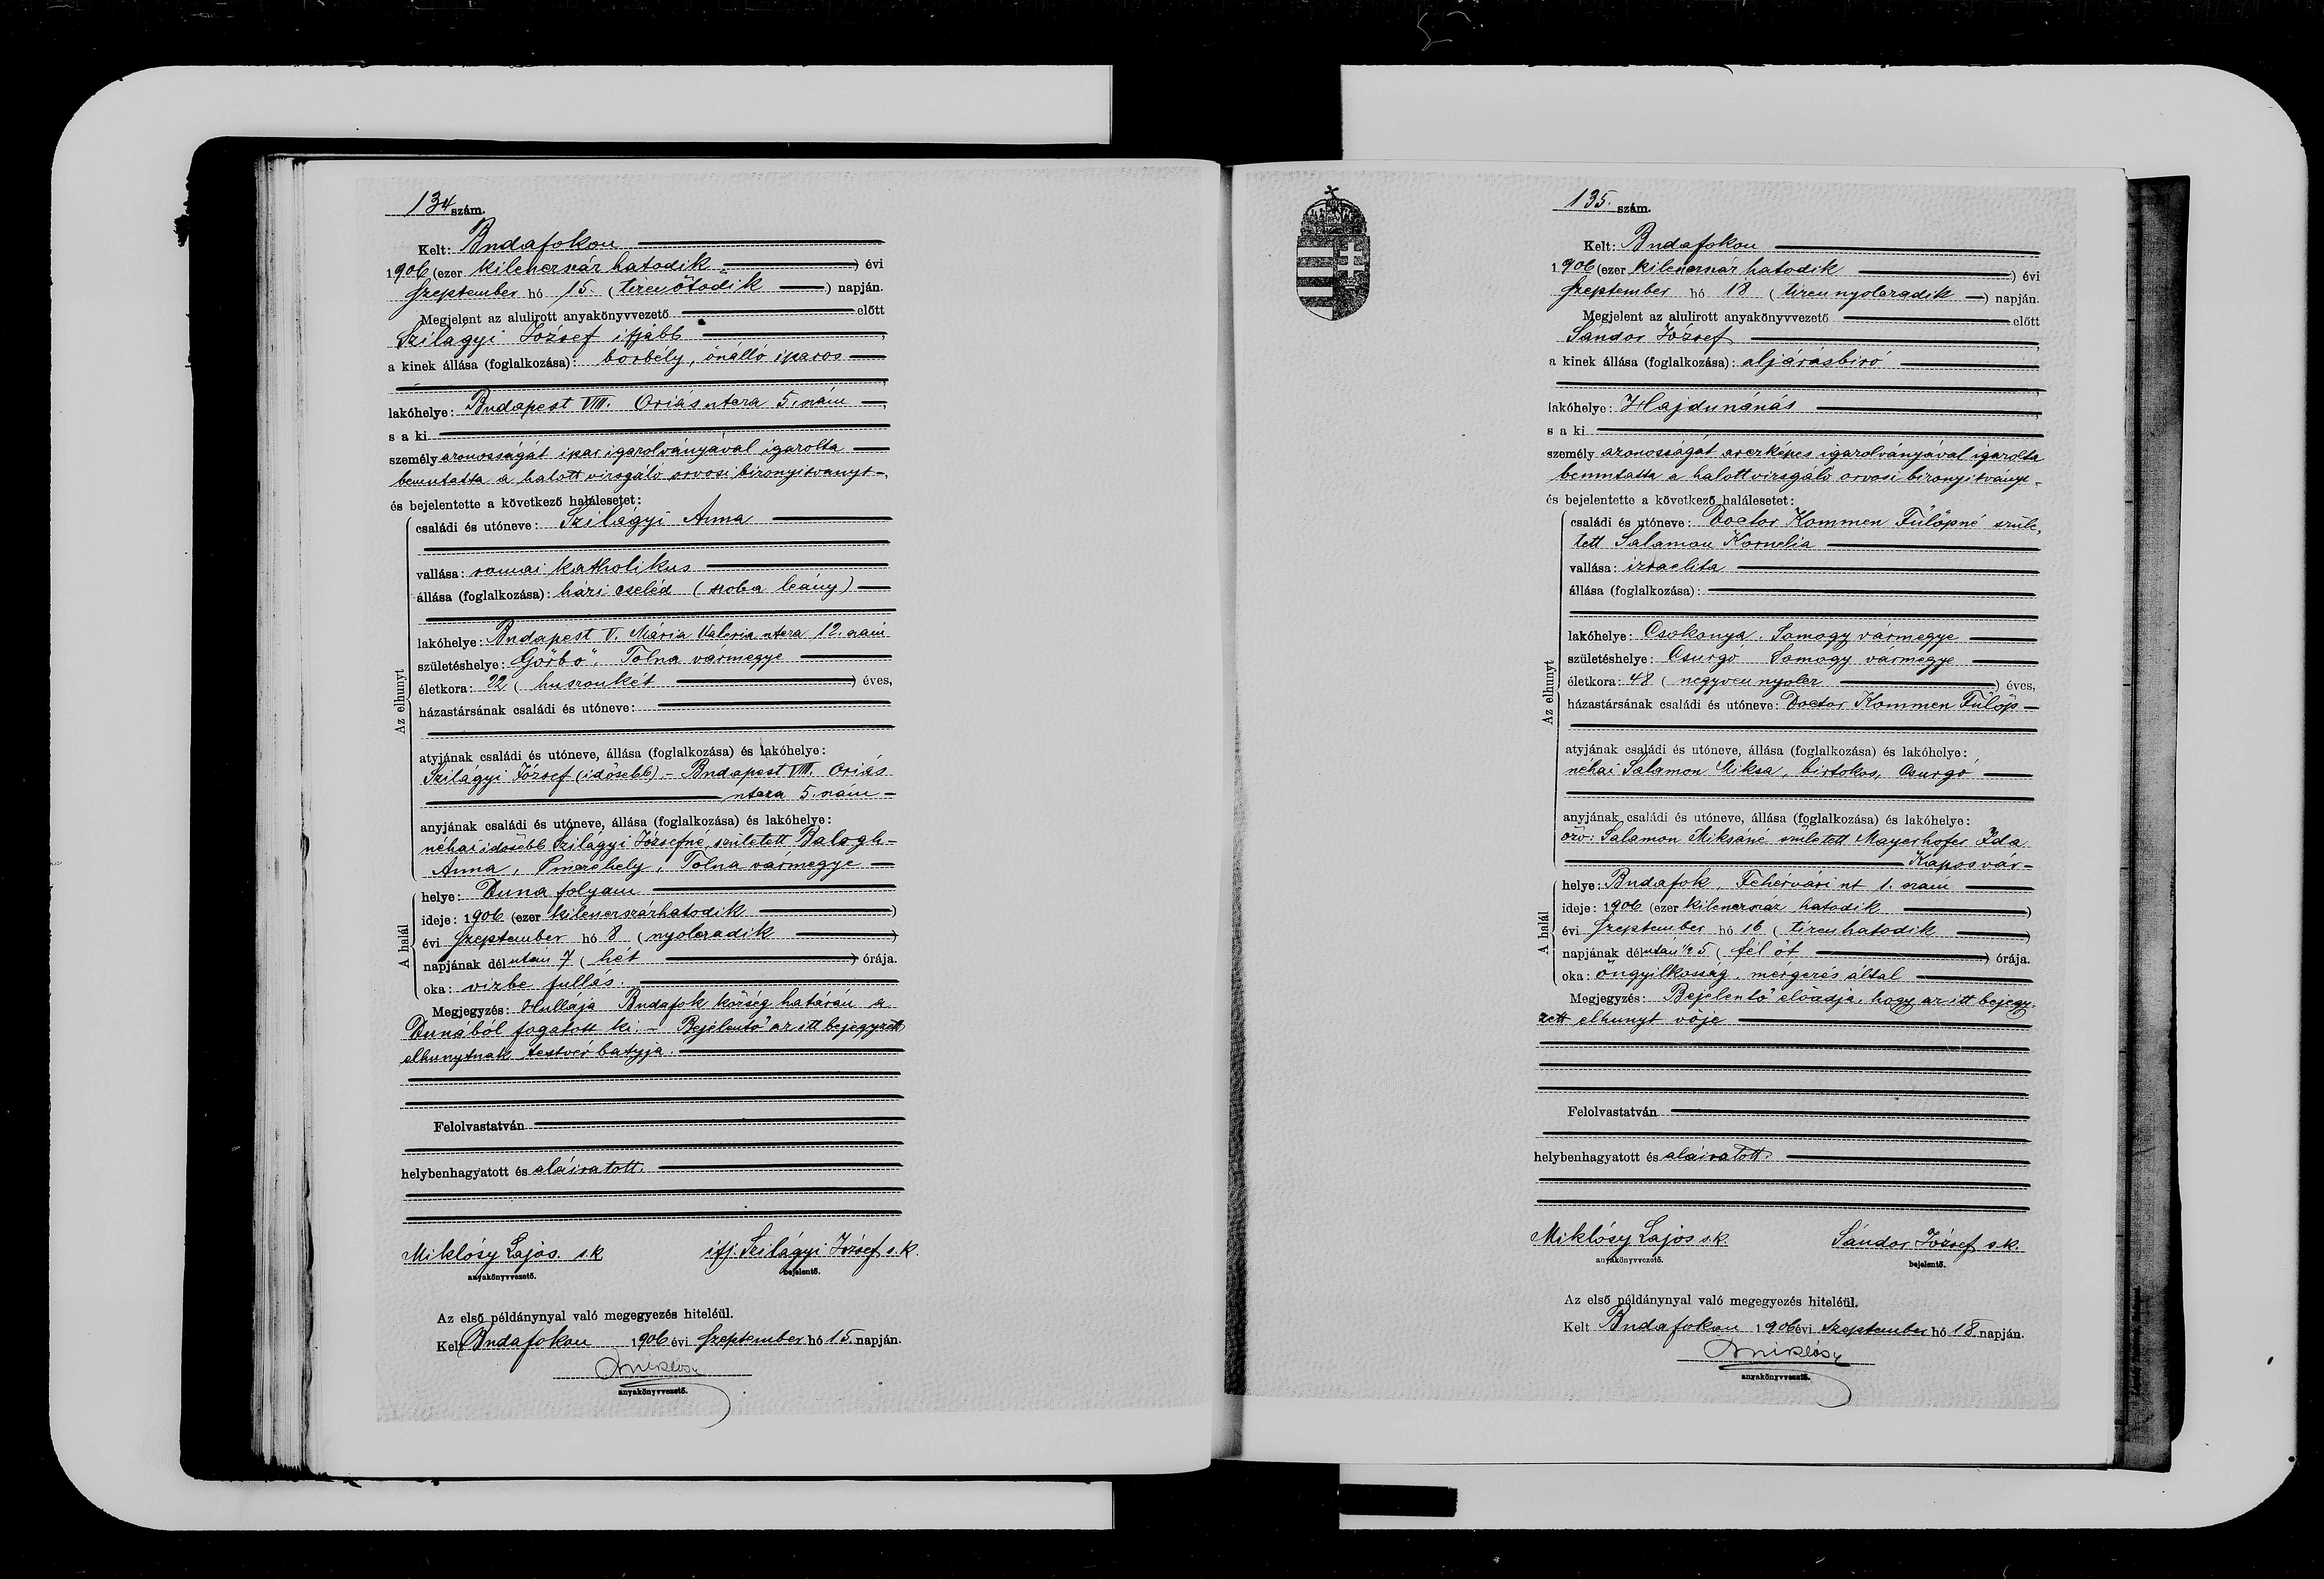 134 szám.
Kelt: Budafokon
1906 (ezer kilencszáz hatodik) évi
Szeptember hó 15. (tizenötödik) napján.
Megjelent az alulirott anyakönyvvezető előtt
Szilágyi József ifjabb,
a kinek állása (foglalkozása): borbély, önálló iparos
lakóhelye: Budapest VIII. Oriás utcza 5. szám,
s a ki
személyazonosságát ipar igazolványával igazolta
bemutatta a halottvizsgáló orvosi bizonyitványt,
és bejelentette a következő halálesetet:
Az elhunyt
családi és utóneve: Szilágyi Anna
vallása: romai katholikus
állása (foglalkozása): házi cseléd (szoba leány)
lakóhelye: Budapest V. Mária Valeria utcza 12. szám
születéshelye: Görbő, Tolna vármegye
életkora: 22 (huszonkét) éves,
házastársának családi és utóneve:
atyjának családi és utóneve, állása (foglalkozása) és lakóhelye:
Szilágyi József (idősebb) - Budapest VIII. Oriás
utcza 5. szám -
anyjának családi és utóneve, állása (foglalkozása) és lakóhelye:
néhai idősebb Szilágyi Józsefné, született Balogh
Anna, Pinczehely, Tolna vármegye
A halál
helye: Duna folyam
ideje: 1906 (ezer kilencszázhatodik)
évi Szeptember hó 8 (nyolczadik)
napjának délután 7 (hét) órája.
oka: vizbe fullás.
Megjegyzés: Hullája Budafok község határán a
Dunából fogatott ki. - Bejelentő az itt bejegyzett
elhunytnak testvér bátyja.
Felolvastatván
helybenhagyatott és aláiratott.
Miklósy Lajos. s.k. ifj. Szilágyi József s.k.
anyakönyvvezető. bejelentő.
Az első példánynyal való megegyezés hiteléül.
Kelt Budafokon 1906 évi Szeptember hó 15. napján.
Miklósy
anyakönyvvezető.
135. szám.
Kelt: Budafokon
1906 (ezer kilencszáz hatodik) évi
Szeptember hó 18 (tizennyolczadik) napján.
Megjelent az alulirott anyakönyvvezető előtt
Sándor József,
a kinek állása (foglalkozása): aljárásbiró
lakóhelye: Hajdunánás,
s a ki
személyazonosságát arczképes igazolványával igazolta
bemutatta a halottvizsgáló orvosi bizonyitványt
és bejelentette a következő halálesetet:
Az elhunyt
családi és utóneve: Doctor Kommen Fülöpné szüle,
tett Salamon Kornelia
vallása: izraelita
állása (foglalkozása):
lakóhelye: Csokonya. Somogy vármegye
születéshelye: Csurgó Somogy vármegye
életkora: 48 (negyvennyolcz) éves,
házastársának családi és utóneve: Doctor Kommen Fülöp
atyjának családi és utóneve, állása (foglalkozása) és lakóhelye:
néhai Salamon Miksa, birtokos, Csurgó
anyjának családi és utóneve, állása (foglalkozása) és lakóhelye:
özv: Salamon Miksáné született Mayerhofer Ida
Kaposvár
A halál
helye: Budafok, Fehérvári ut 1. szám
ideje: 1906 (ezer kilencszáz hatodik)
évi Szeptember hó 16 (tizenhatodik)
napjának délután ½5 (fél öt) órája.
oka: öngyilkosság, mérgezés által
Megjegyzés: Bejelentő előadja, hogy az itt bejegy
zett elhunyt vője
Felolvastatván
helybenhagyatott és aláiratott.
Miklósy Lajos s.k. Sándor József s.k.
anyakönyvvezető. bejelentő.
Az első példánynyal való megegyezés hiteléül.
Kelt Budafokon 1906 évi Szeptember hó 18 napján.
Miklósy
anyakönyvvezető.